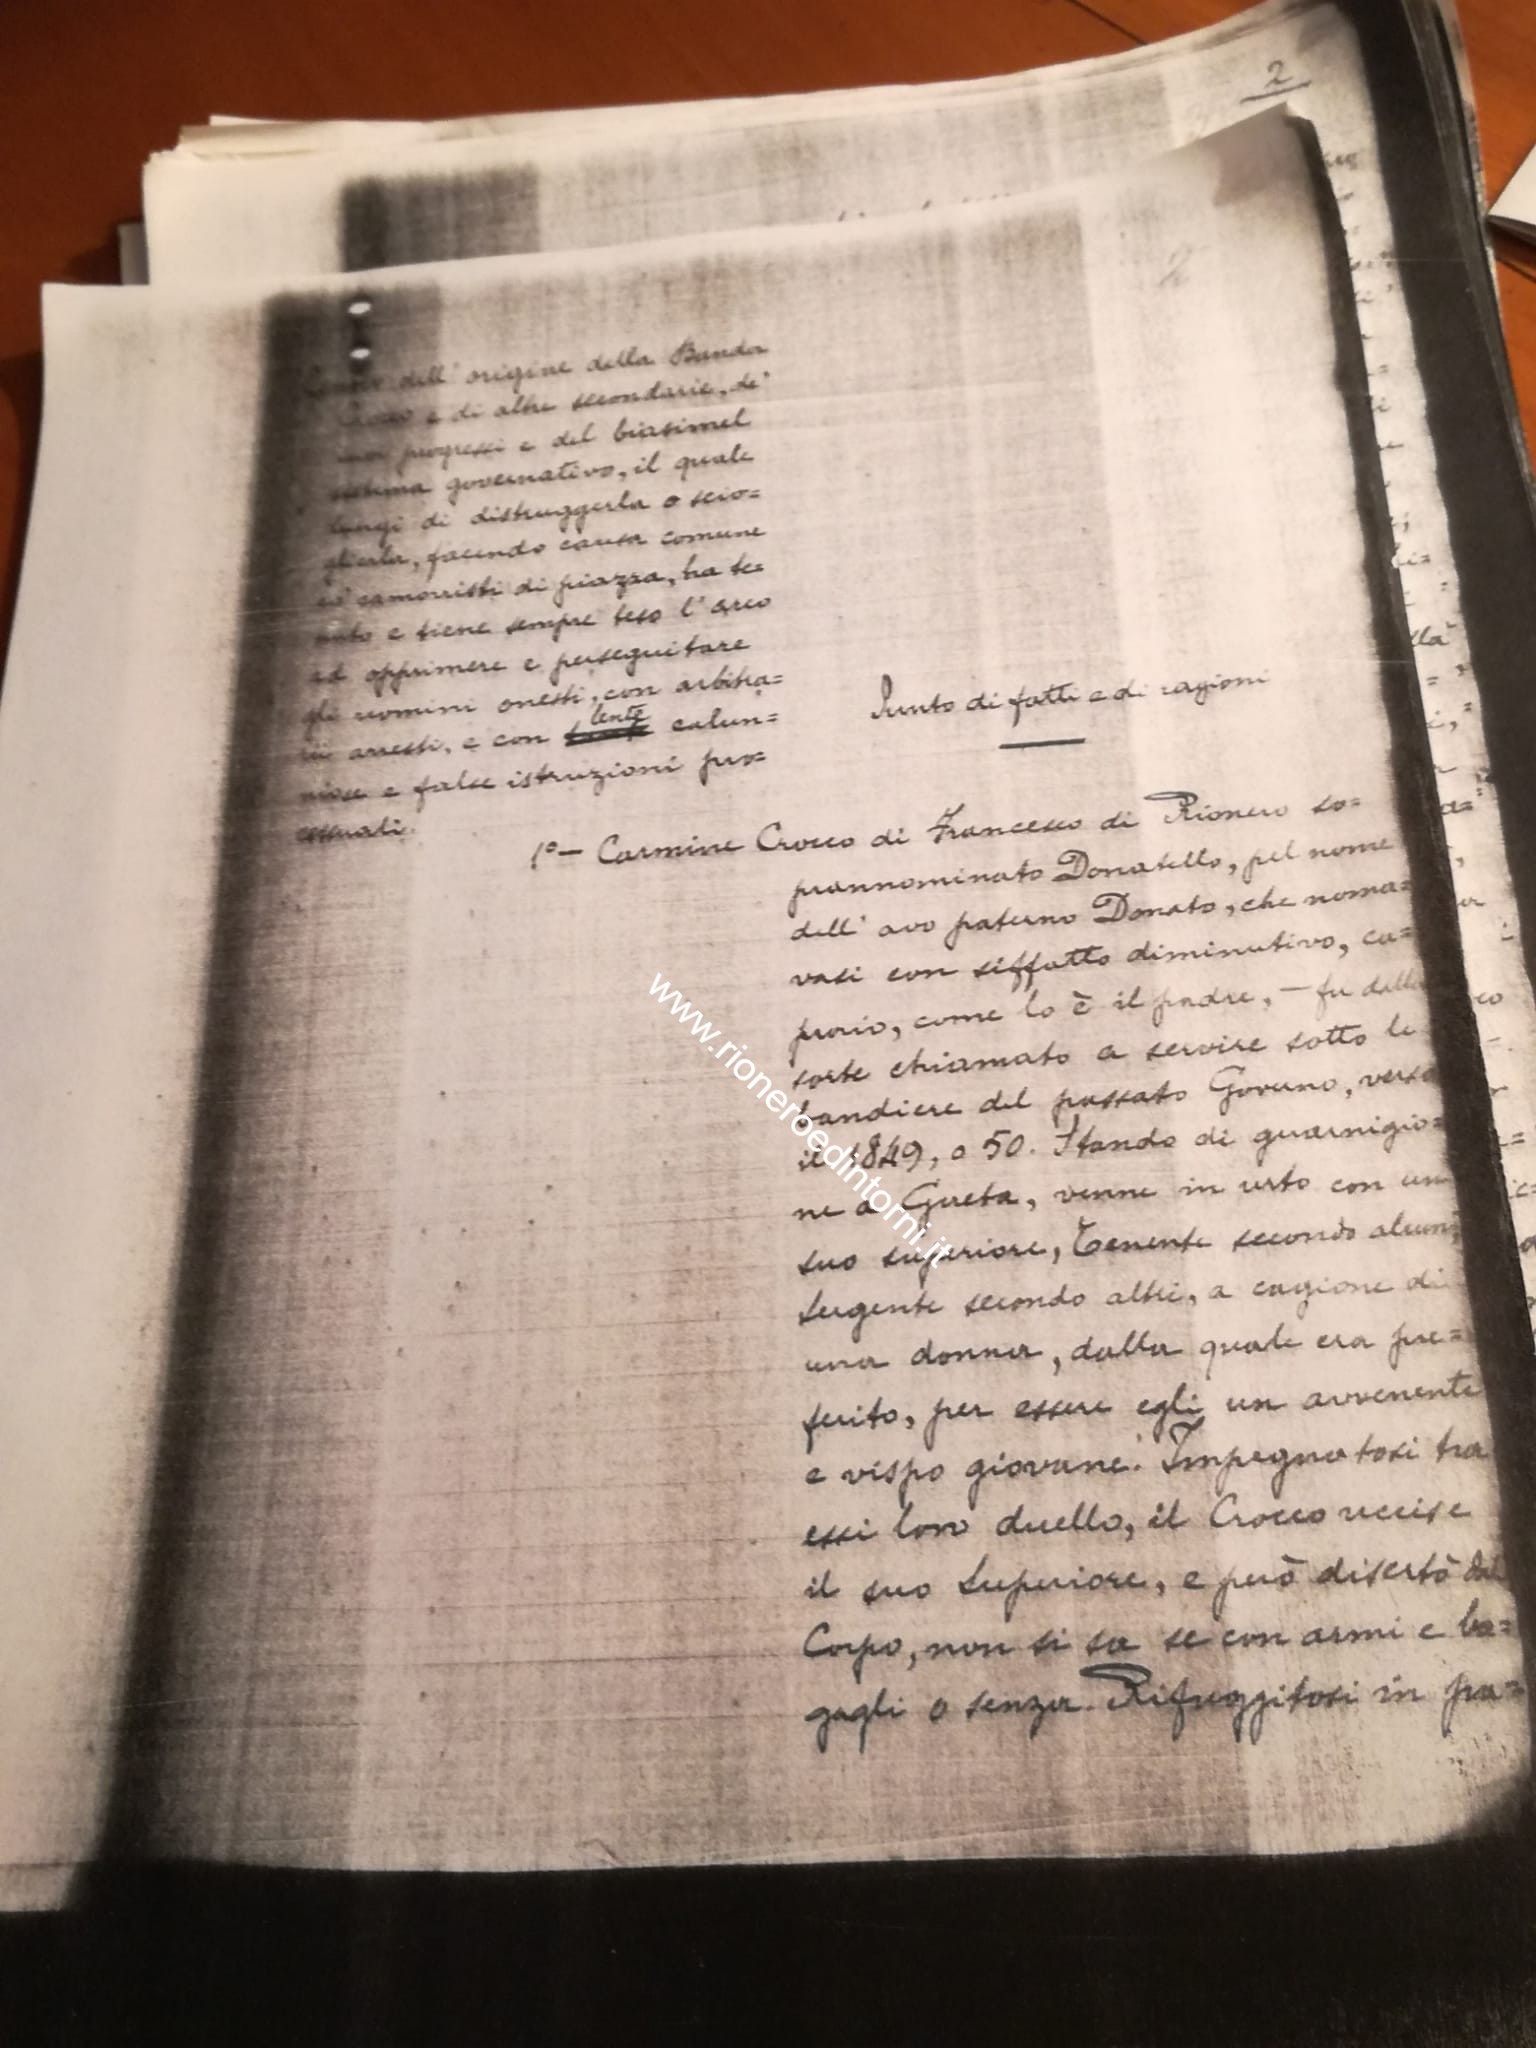 2
2
dell'origine della Banda
Crocco e di altre secondarie, de'
suoi progressi e del biasimel
sistema governativo, il quale
lungi di distruggerla o scio=
glierla, facendo causa comune
co' camorristi di piazza, ha te=
nuto e tiene sempre teso l'arco
ad opprimere e perseguitare
gli uomini onesti, con arbitra=
rii arresti, e con lente calun=
niose e false istruzioni pro=
cessuali.
Punto di fatti e di ragioni
1º— Carmine Crocco di Francesco di Rionero so=
prannominato Donatello, pel nome
dell' avo paterno Donato, che noma=
vasi con siffatto diminutivo, ca=
praio, come lo è il padre, — fu dalla
sorte chiamato a servire sotto le
bandiere del passato Governo, verso
il 1849, o 50. Stando di guarnigio=
ne a Gaeta, venne in urto con un
suo superiore, Tenente secondo alcuni,
Sergente secondo altri, a cagione di
una donna, dalla quale era pre=
ferito, per essere egli un avvenente
e vispo giovane. Impegnatosi tra
essi loro duello, il Crocco uccise
il suo Superiore, e però disertò dal
Corpo, non si sa se con armi e ba=
gagli o senza. Rifuggitosi in pa=
www.rioneroedintorni.it